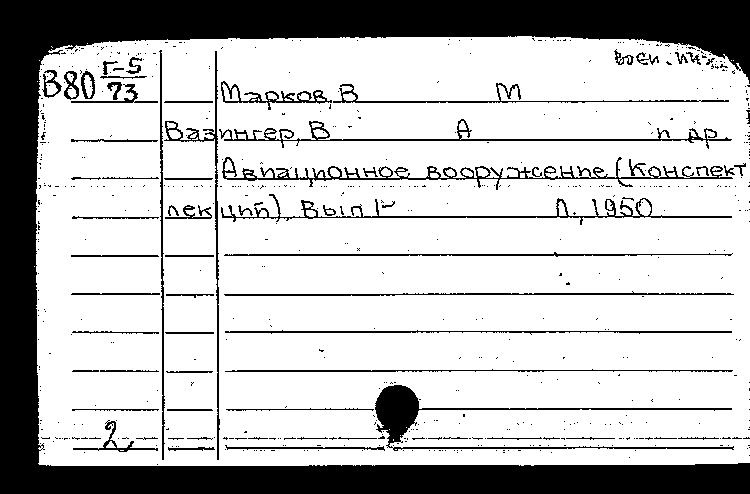 воен.
В80 Г-5/73
Марков, В М
Вазингер, В А и др.
Авиационное вооружение (Конспект
лекций), Вып 1 Л., 1950
2